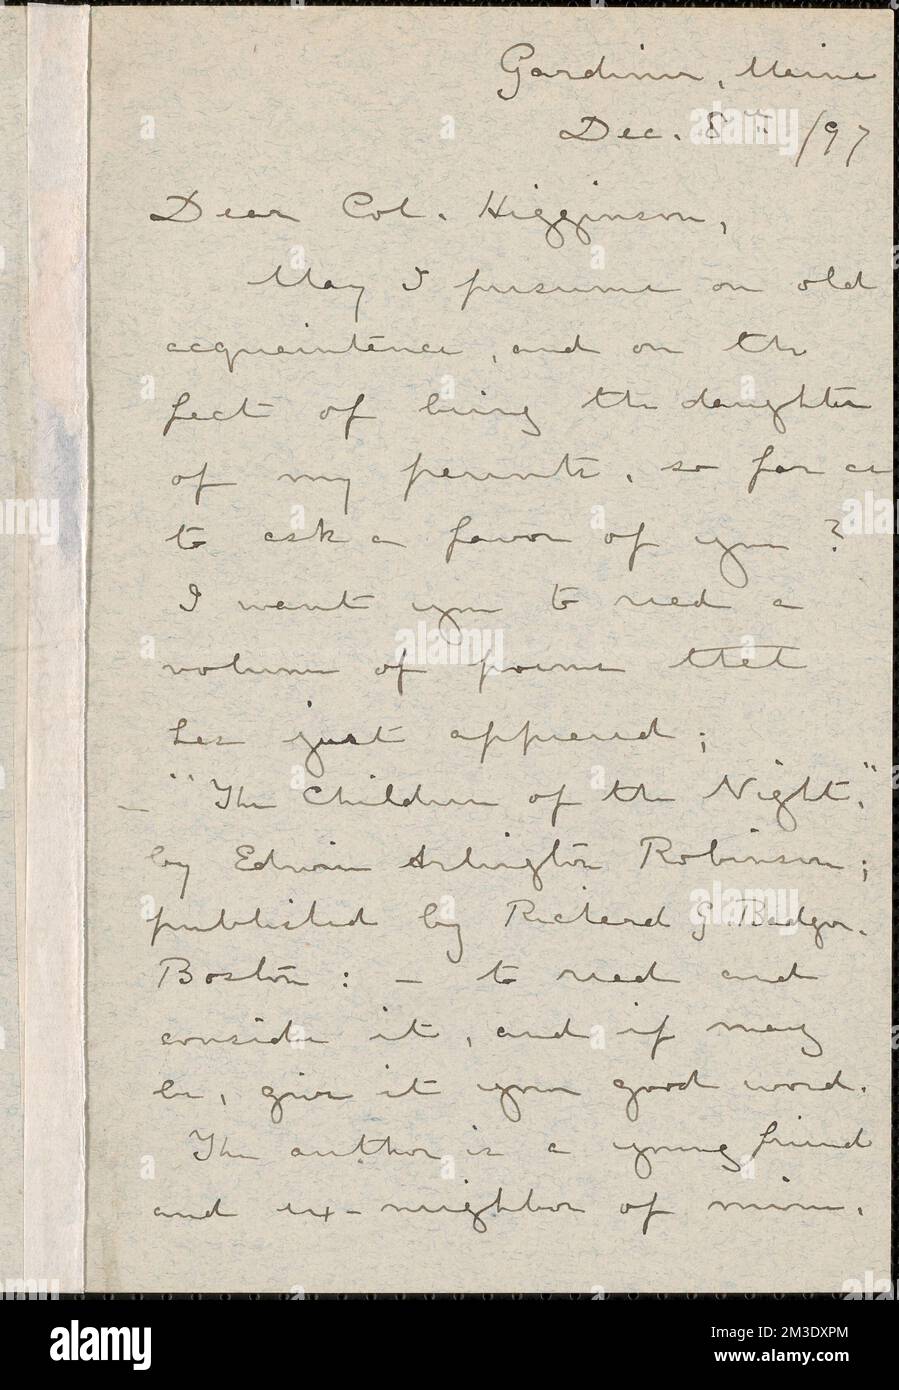 Gardiner, Maine
Dec. 8th /97
Dear Col. Higginson,
May I presume on old
acquaintance, and on the
fact of being the daughter
of my parents, so far as
to ask a favor of you?
I want you to read a
volume of poems that
has just appeared;
— "The Children of the Night,"
by Edwin Arlington Robinson;
published by Richard G. Badger.
Boston: — to read and
consider it, and if may
be, give it your good word.
The author is a young friend
and ex-neighbor of mine.
alamy
Image ID: 2M3DXPM
www.alamy.com